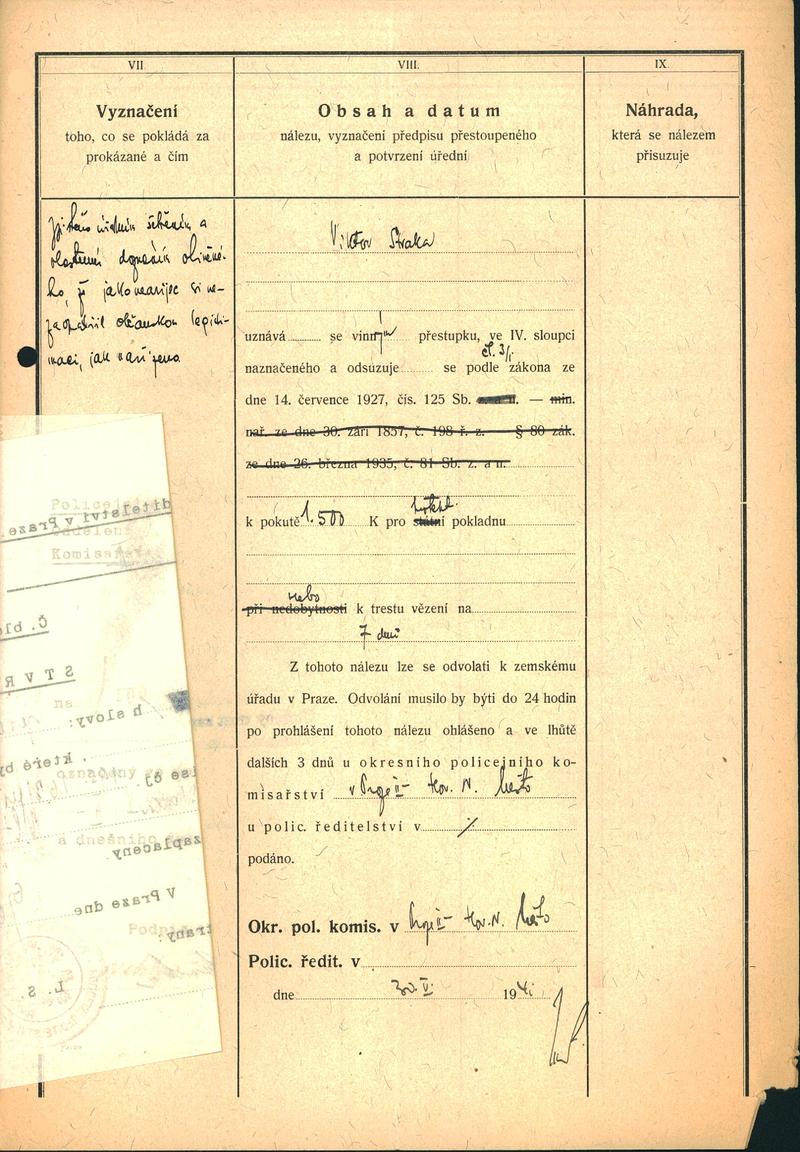 VII.
Vyznačení
toho, co se pokládá za
prokázané a čím
Zjištěno úředním šetřením a
vlastním doznáním obviněné-
ho, že jako nearijec si ne-
zaopatřil občanskou legiti-
maci, jak nařízeno.
VIII.
Obsah a datum
nálezu, vyznačení předpisu přestoupeného
a potvrzení úřední
Viktor Straka
uznává se vinným přestupku, ve IV. sloupci
čl. 3/1.
naznačeného a odsuzuje se podle zákona ze
dne 14. července 1927, čís. 125 Sb. z. a n. — min.
nař. ze dne 30. září 1857, č. 198 ř. z. — § 80 zák.
ze dne 26. března 1935, č. 81 Sb. z. a n.
k pokutě 1.500 K pro státní pokladnu
nebo
při nedobytnosti k trestu vězení na
7 dnů
Z tohoto nálezu lze se odvolati k zemskému
úřadu v Praze. Odvolání musilo by býti do 24 hodin
po prohlášení tohoto nálezu ohlášeno a ve lhůtě
dalších 3 dnů u okresního policejního ko-
misařství v Praze II - Hor. N. Město
u polic. ředitelství v /
podáno.
Okr. pol. komis. v Praze II - Hor. N. Město
Polic. ředit. v
dne 30. V. 1941
IX.
Náhrada,
která se nálezem
přisuzuje
ditelství v Praze.
Komisařství
Č. blo
S T V R
h slovy:
, které by
zaplaceny
V Praze dne
strany:
L. S.